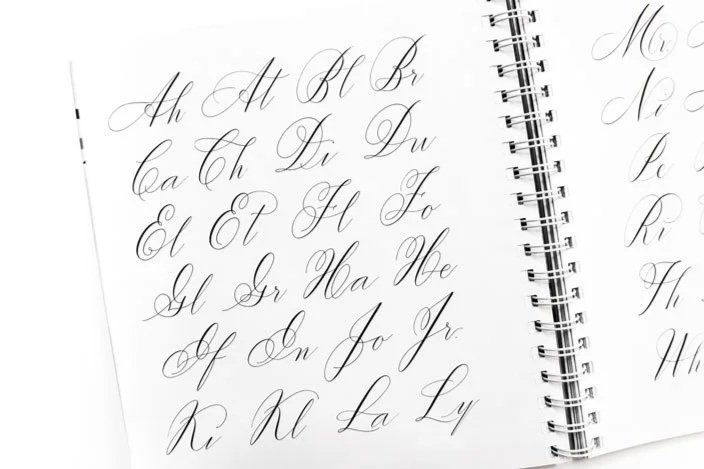 Ah At Bl Br
Ca Ch Di Du
El Et Fl Fo
Gl Gr Ha He
If In Jo Jr.
Ki Kl La Ly
Mr
Ni
Pe
Ri
Th
Wh